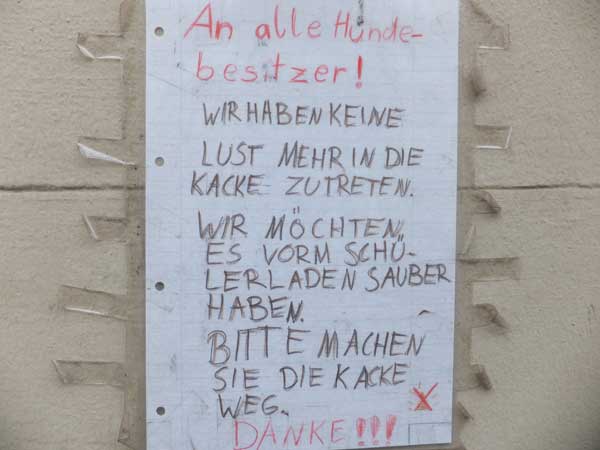 An alle Hunde-
besitzer!
WIR HABEN KEINE
LUST MEHR IN DIE
KACKE ZU TRETEN.
WIR MÖCHTEN,
ES VORM SCHÜ-
LERLADEN SAUBER
HABEN.
BITTE MACHEN
SIE DIE KACKE
WEG.
DANKE!!!